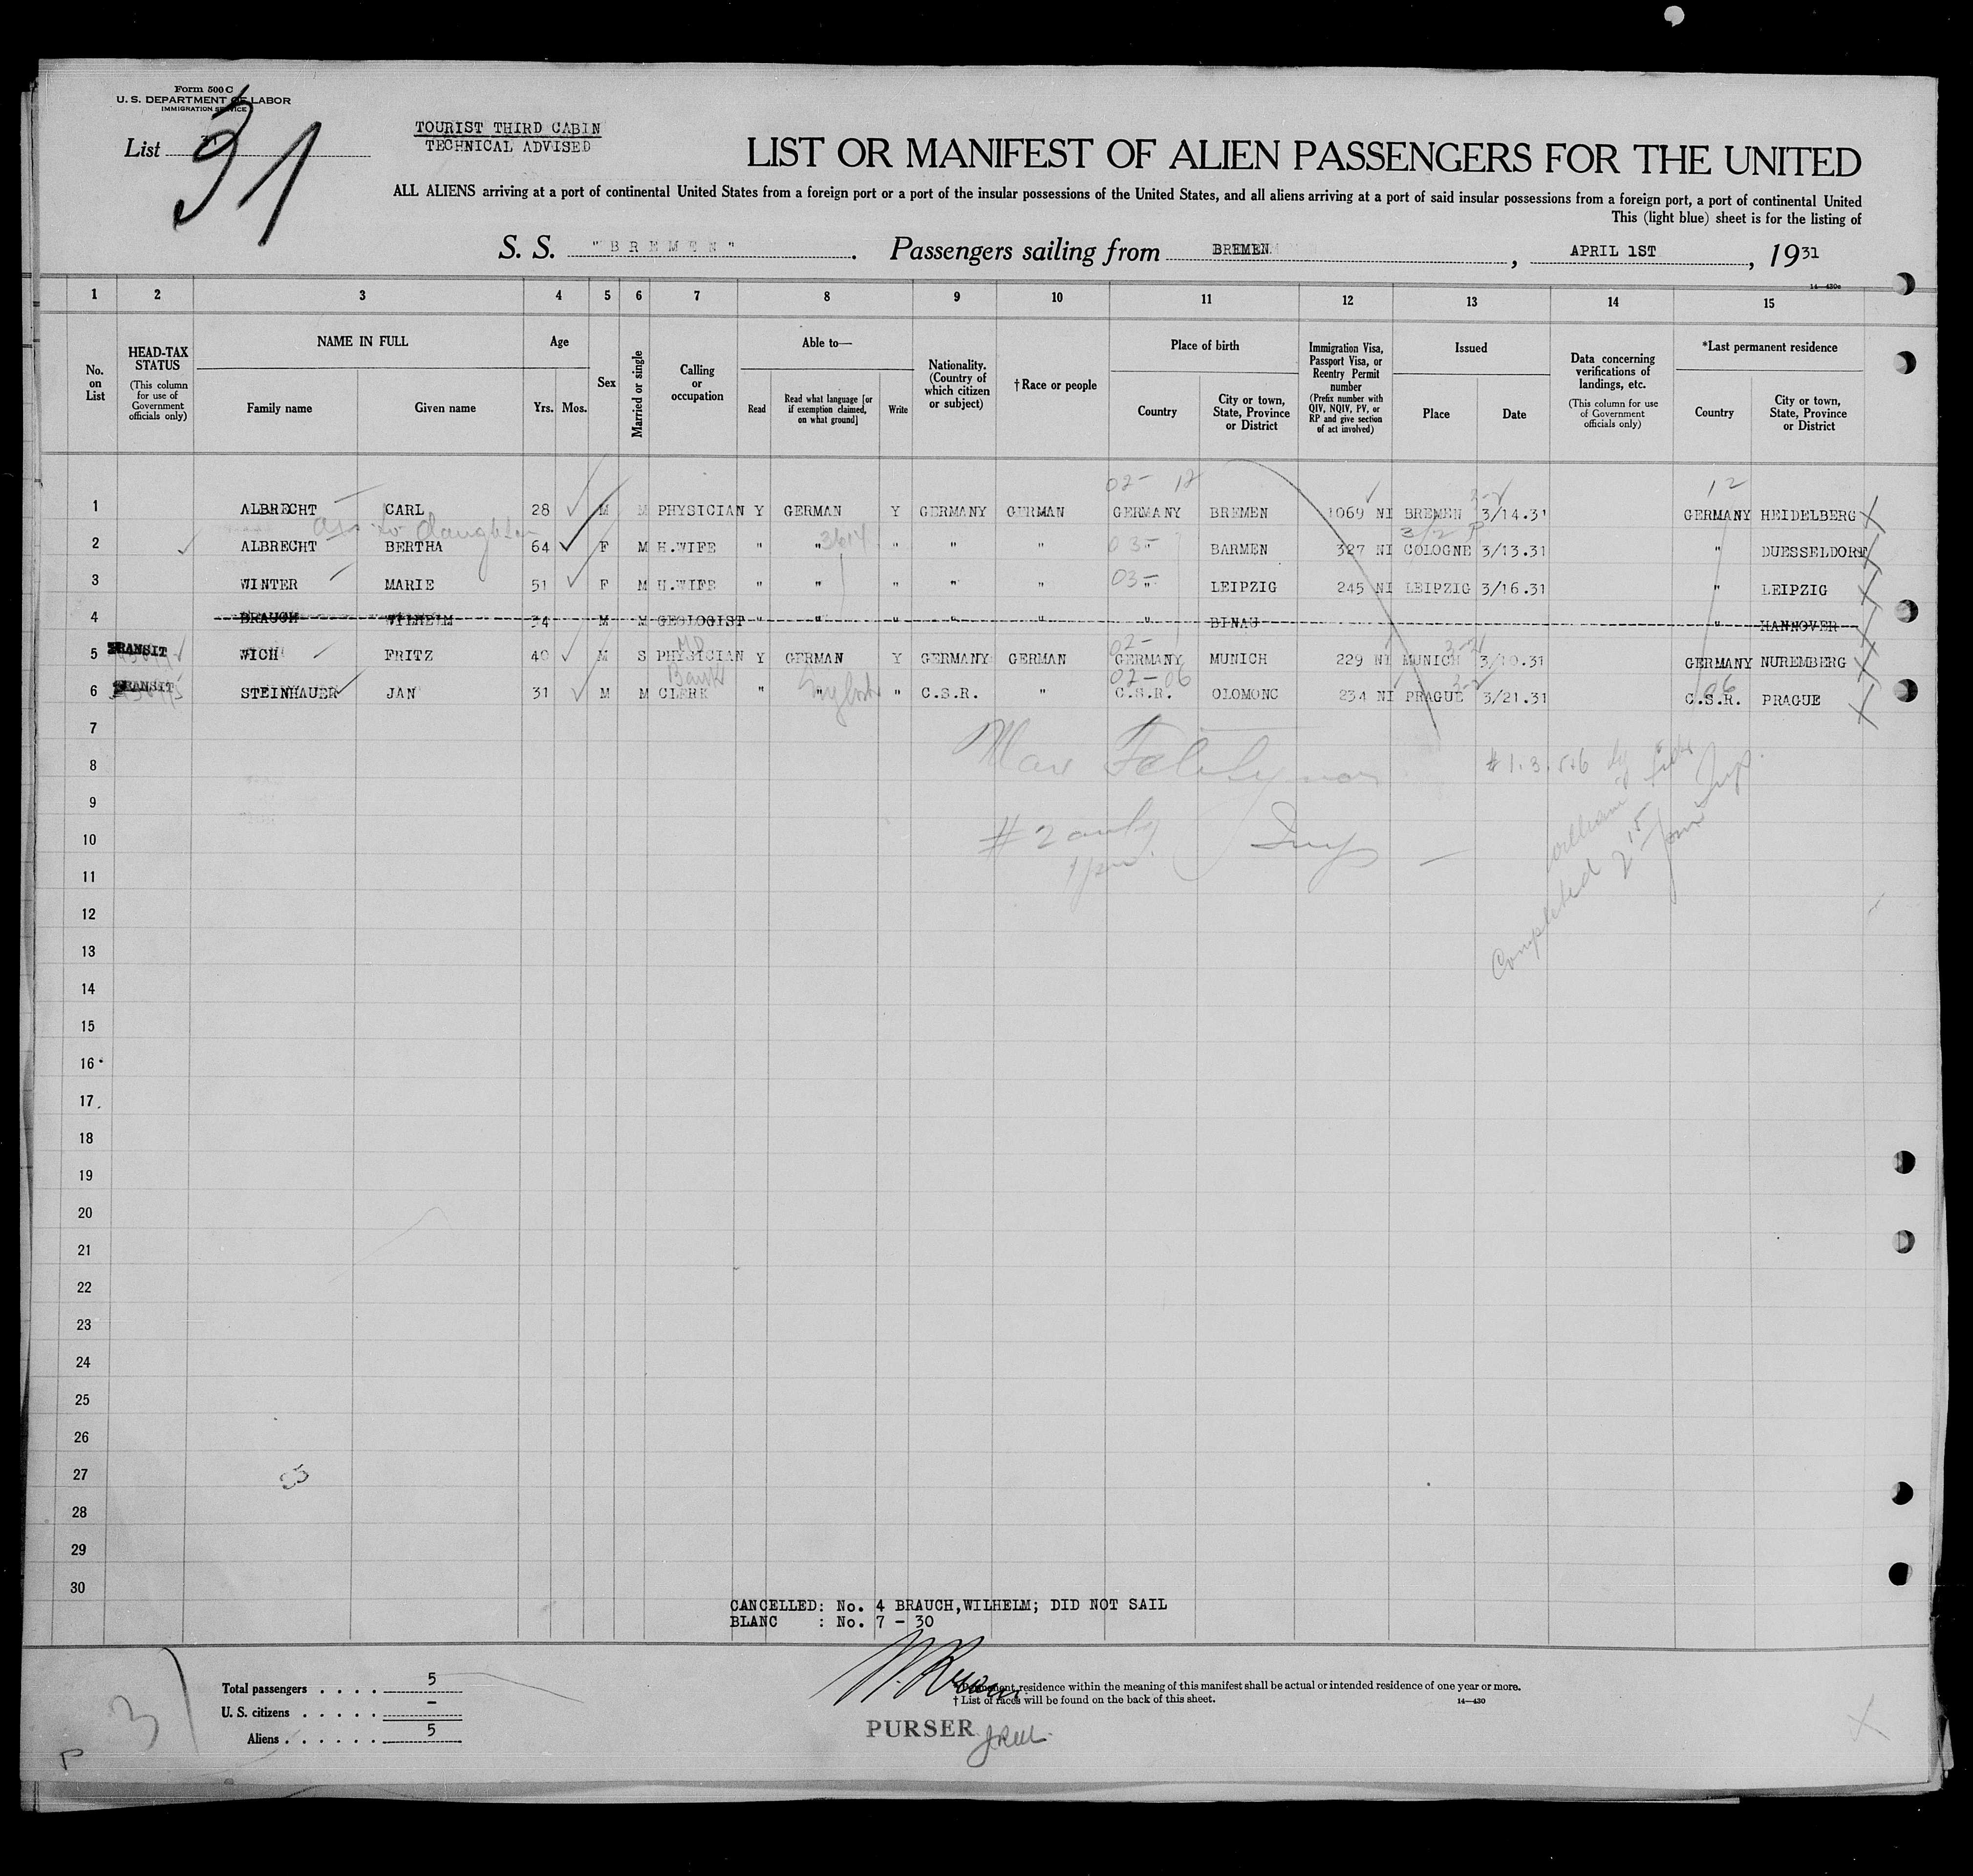 Form 500 C
U. S. DEPARTMENT OF LABOR
IMMIGRATION SERVICE
List 31
TOURIST THIRD CABIN
TECHNICAL ADVISED
LIST OR MANIFEST OF ALIEN PASSENGERS FOR THE UNITED
ALL ALIENS arriving at a port of continental United States from a foreign port or a port of the insular possessions of the United States, and all aliens arriving at a port of said insular possessions from a foreign port, a port of continental United
This (light blue) sheet is for the listing of
S. S. "BREMEN". Passengers sailing from BREMEN, APRIL 1ST, 1931
14—430c
1 2 3 4 5 6 7 8 9 10 11 12 13 14 15
No. on List
HEAD-TAX STATUS (This column for use of Government officials only)
NAME IN FULL Family name Given name
Age Yrs. Mos.
Sex
Married or single
Calling or occupation
Able to— Read Read what language [or if exemption claimed, on what ground] Write
Nationality. (Country of which citizen or subject)
† Race or people
Place of birth Country City or town, State, Province or District
Immigration Visa, Passport Visa, or Reentry Permit number (Prefix number with QIV, NQIV, PV, or RP and give section of act involved)
Issued Place Date
Data concerning verifications of landings, etc. (This column for use of Government officials only)
*Last permanent residence Country City or town, State, Province or District
02- 12 12
1 ALBRECHT CARL 28 M M PHYSICIAN Y GERMAN Y GERMANY GERMAN GERMANY BREMEN 1069 NI BREMEN 3/14.31 GERMANY HEIDELBERG
daughter
2 ALBRECHT BERTHA 64 F M H.WIFE " " " " " " BARMEN 327 NI COLOGNE 3/13.31 " DUESSELDORF
03-
3 WINTER MARIE 51 F M H.WIFE " " " " " " LEIPZIG 245 NI LEIPZIG 3/16.31 " LEIPZIG
03-
4 BRAUCH WILHELM 34 M M GEOLOGIST " " " " " " BINAU " HANNOVER
MD 02-
5 TRANSIT WICH FRITZ 40 M S PHYSICIAN Y GERMAN Y GERMANY GERMAN GERMANY MUNICH 229 NI MUNICH 3/10.31 GERMANY NUREMBERG
Bank 02-06 06
6 TRANSIT STEINHAUER JAN 31 M M CLERK " " " C.S.R. " C.S.R. OLOMONC 234 NI PRAGUE 3/21.31 C.S.R. PRAGUE
7
8 Max
9
10 #2 only Insp
11
Completed
12
13
14
15
16
17
18
19
20
21
22
23
24
25
26
27
28
29
30
CANCELLED: No. 4 BRAUCH,WILHELM; DID NOT SAIL
BLANC : No. 7 - 30
31
Total passengers . . . . 5
U. S. citizens . . . . . -
Aliens . . . . . . 5
* Permanent residence within the meaning of this manifest shall be actual or intended residence of one year or more.
† List of races will be found on the back of this sheet.
14—430
PURSER
P